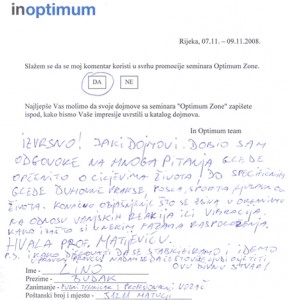 inoptimum
Rijeka, 07.11. – 09.11.2008.
Slažem se da se moj komentar koristi u svrhu promocije seminara Optimum Zone.
DA NE
Najljepše Vas molimo da svoje dojmove sa seminara "Optimum Zone" zapišete
ispod, kako bismo Vaše impresije uvrstili u katalog dojmova.
In Optimum team
IZVRSNO! JAKI DOJMOVI. DOBIO SAM
ODGOVORE NA MNOGA PITANJA GLEDE
OPĆENITO O CILJEVIMA ŽIVOTA! DO SPECIFIČNIH
GLEDE DUHOVNE PRAKSE, POSLA, SPORTA
ŽIVOTA. KONAČNO OBJAŠNJENJE ŠTO SE U ORGANIZMU
NA ODNOSU VANJSKIH REAKCIJA ILI VIBRACIJA
KAKO I NEKIM FAZAMA RASPOLOŽENJA.
HVALA PROF. MATIJEVIĆU.
P.S. I IDEMO
OVU DIVNU STVAR!
Ime – LINO
Prezime – BUDAK
Zanimanje –
Poštanski broj i mjesto – MATULJI